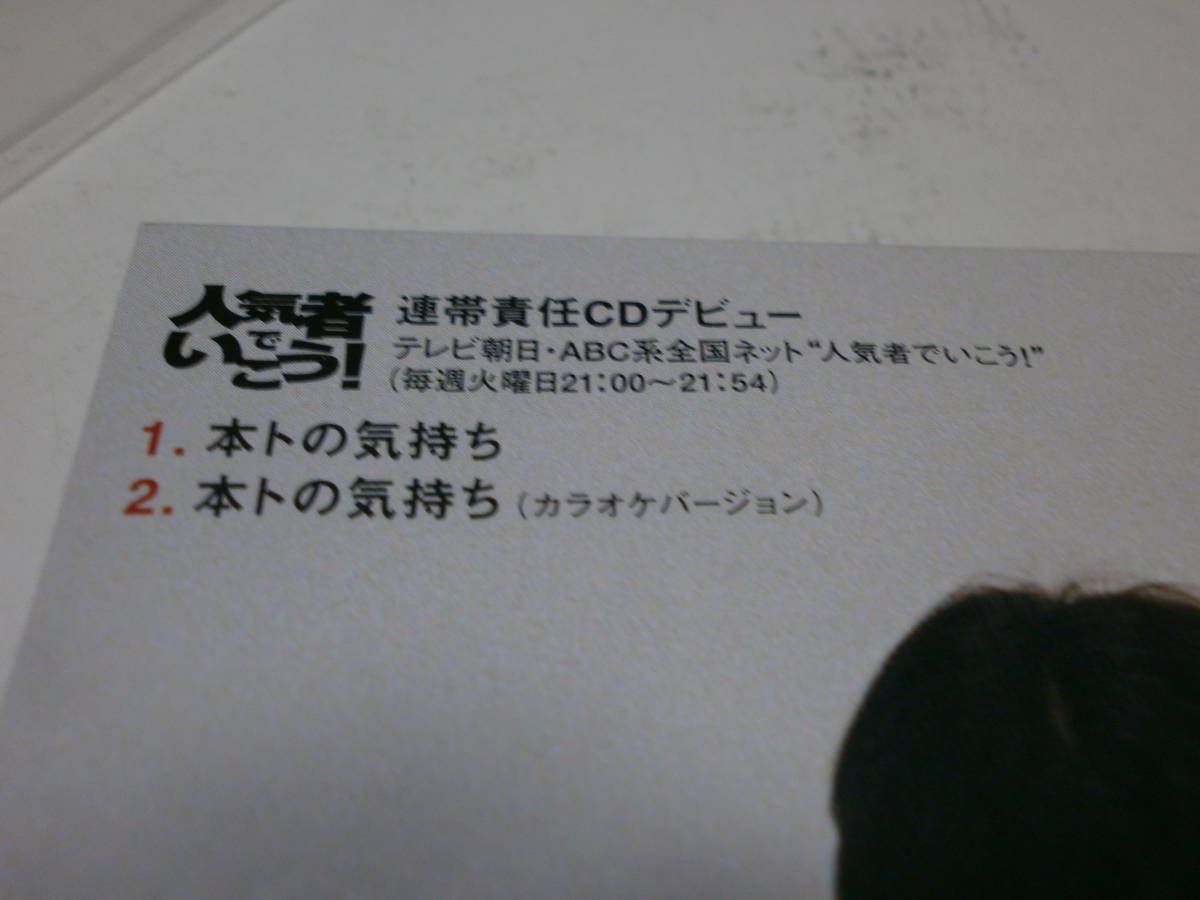 人気者
で
いこう!
連帯責任CDデビュー
テレビ朝日・ABC系全国ネット“人気者でいこう!”
(毎週火曜日21:00〜21:54)
1. 本トの気持ち
2. 本トの気持ち (カラオケバージョン)